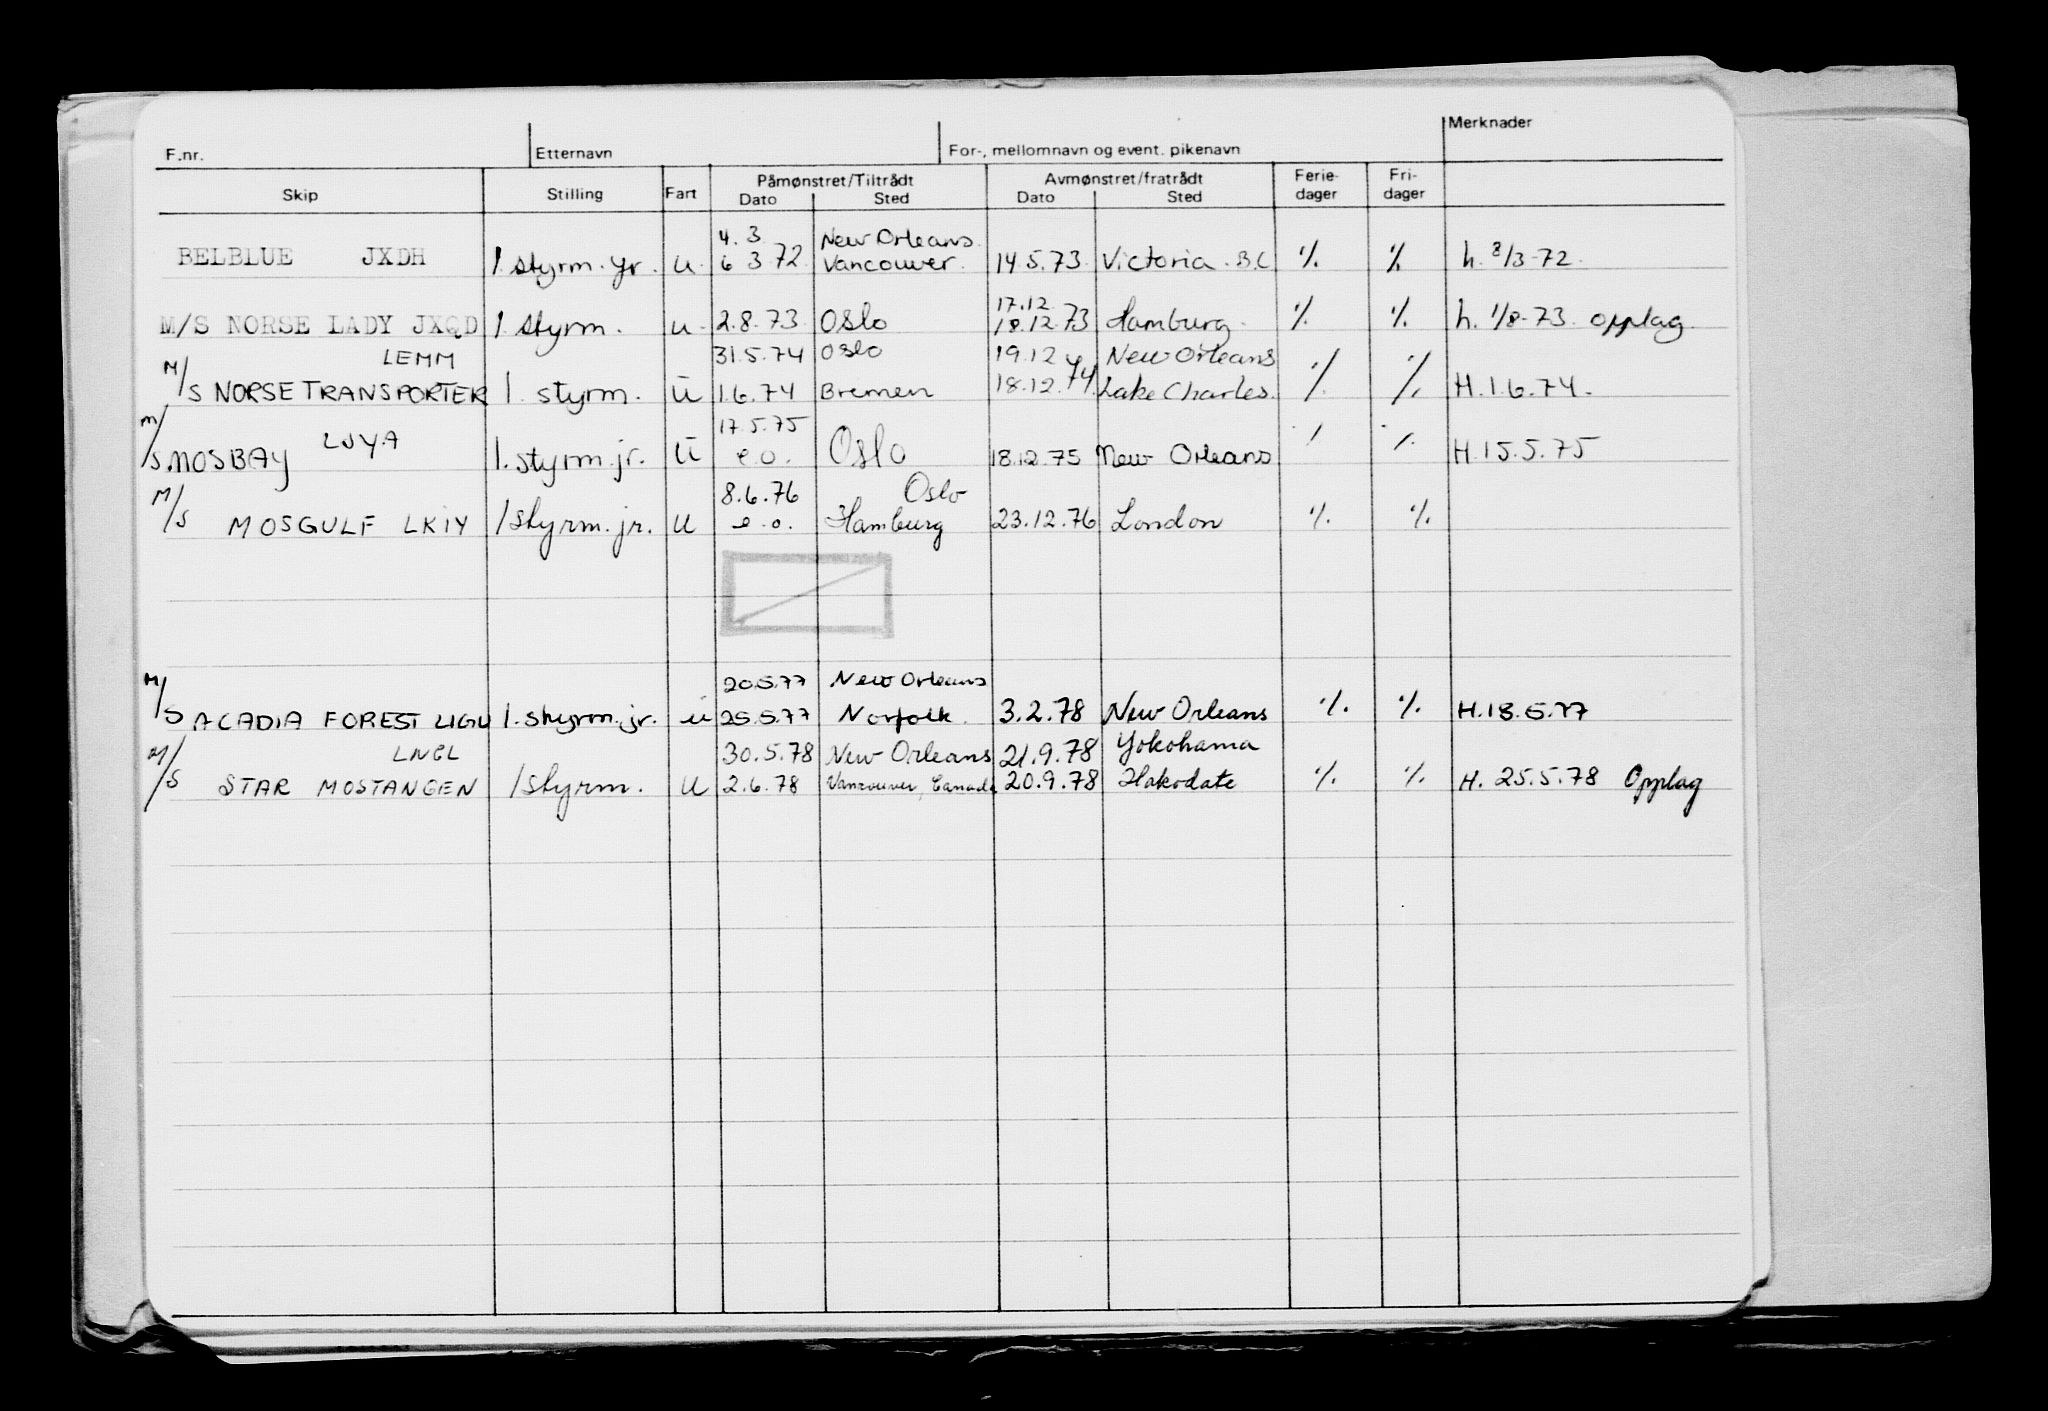 F.nr. Etternavn For-, mellomnavn og event. pikenavn Merknader
Skip Stilling Fart Påmønstret/Tiltrådt Avmønstret/fratrådt Ferie- Fri-
Dato Sted Dato Sted dager dager
4. 3 New Orleans.
BELBLUE JXDH 1. styrm. jr. u. 6 3 72 Vancouver. 14.5.73 Victoria. B.C ·/. ·/. h. 8/3-72.
17.12.
M/S NORSE LADY JXQD 1. styrm. u. 2.8.73 Oslo 18.12.73 Hamburg. ·/. ·/. h. 1/8-73. opplag.
LEMM 31.5.74 Oslo 19.12 New Orleans
M/S NORSE TRANSPORTER 1. styrm. u 1.6.74 Bremen 18.12.74 Lake Charles. ·/. ·/. H.1.6.74.
17.5.75
M/S. MOSBAY LJYA 1. styrm. jr. u e.o. Oslo 18.12.75 New Orleans ·/. ·/. H.15.5.75
8.6.76 Oslo
M/S MOSGULF LKIY 1 styrm. jr. u e.o. Hamburg 23.12.76 London ·/. ·/.
20.5.77 New Orleans
M/S ACADIA FOREST LIGU 1. styrm. jr. u 25.5.77 Norfolk. 3.2.78 New Orleans ·/. ·/. H.18.5.77
LNGL 30.5.78 New Orleans 21.9.78 Yokohama
M/S STAR MOSTANGEN 1 styrm. u 2.6.78 Vancouver, Canada 20.9.78 Hakodate ·/. ·/. H. 25.5.78 Opplag